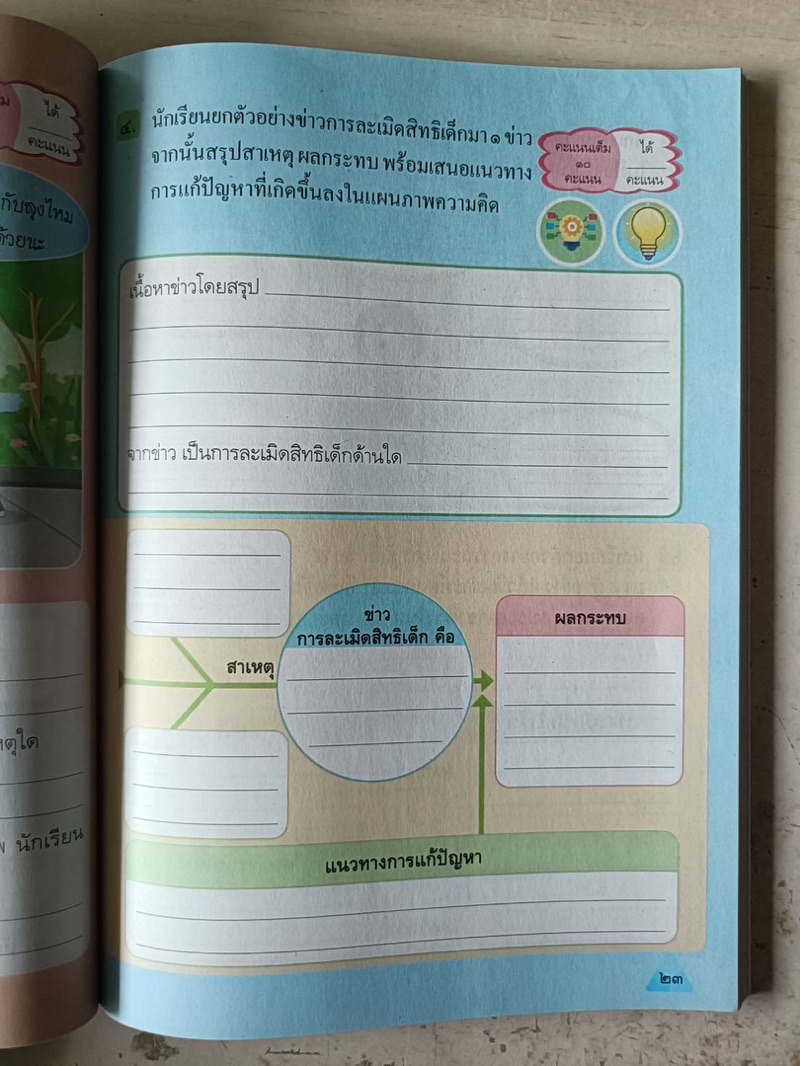 ได้
คะแนน
กับลุงไหม
ด้วยนะ
นักเรียน
๔. นักเรียนยกตัวอย่างข่าวการละเมิดสิทธิเด็กมา ๑ ข่าว
จากนั้นสรุปสาเหตุ ผลกระทบ พร้อมเสนอแนวทาง
การแก้ปัญหาที่เกิดขึ้นลงในแผนภาพความคิด
คะแนนเต็ม
๑๐
คะแนน
ได้
คะแนน
เนื้อหาข่าวโดยสรุป
จากข่าว เป็นการละเมิดสิทธิเด็กด้านใด
สาเหตุ
ข่าว
การละเมิดสิทธิเด็ก คือ
ผลกระทบ
แนวทางการแก้ปัญหา
๒๓